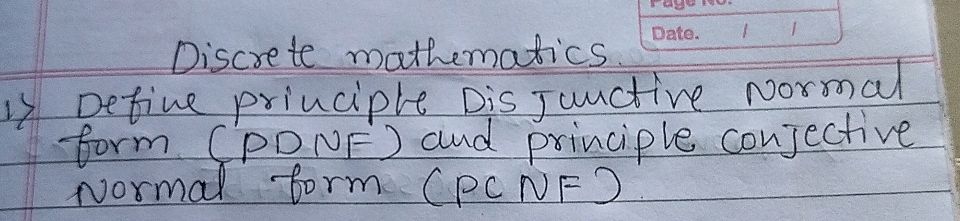 Page No.
Date. / /
Discrete mathematics.
1) Define principle Disjunctive Normal
form (PDNF) and principle conjective
Normal form (PCNF).